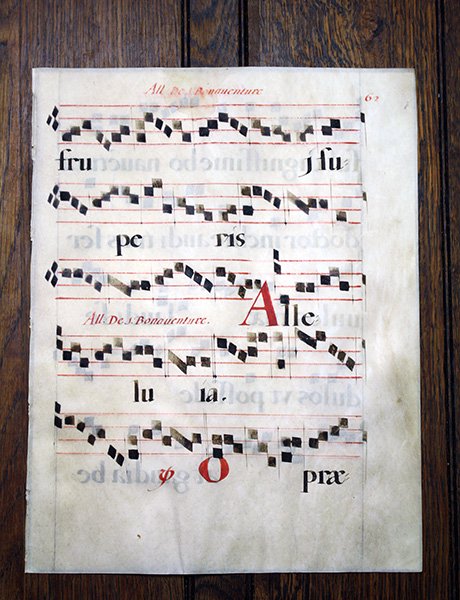 All. De S. Bonauenture
62
fru j ſu
pe ris
Alle
All. De. S. Bonauenture.
lu ia.
℣ O præ